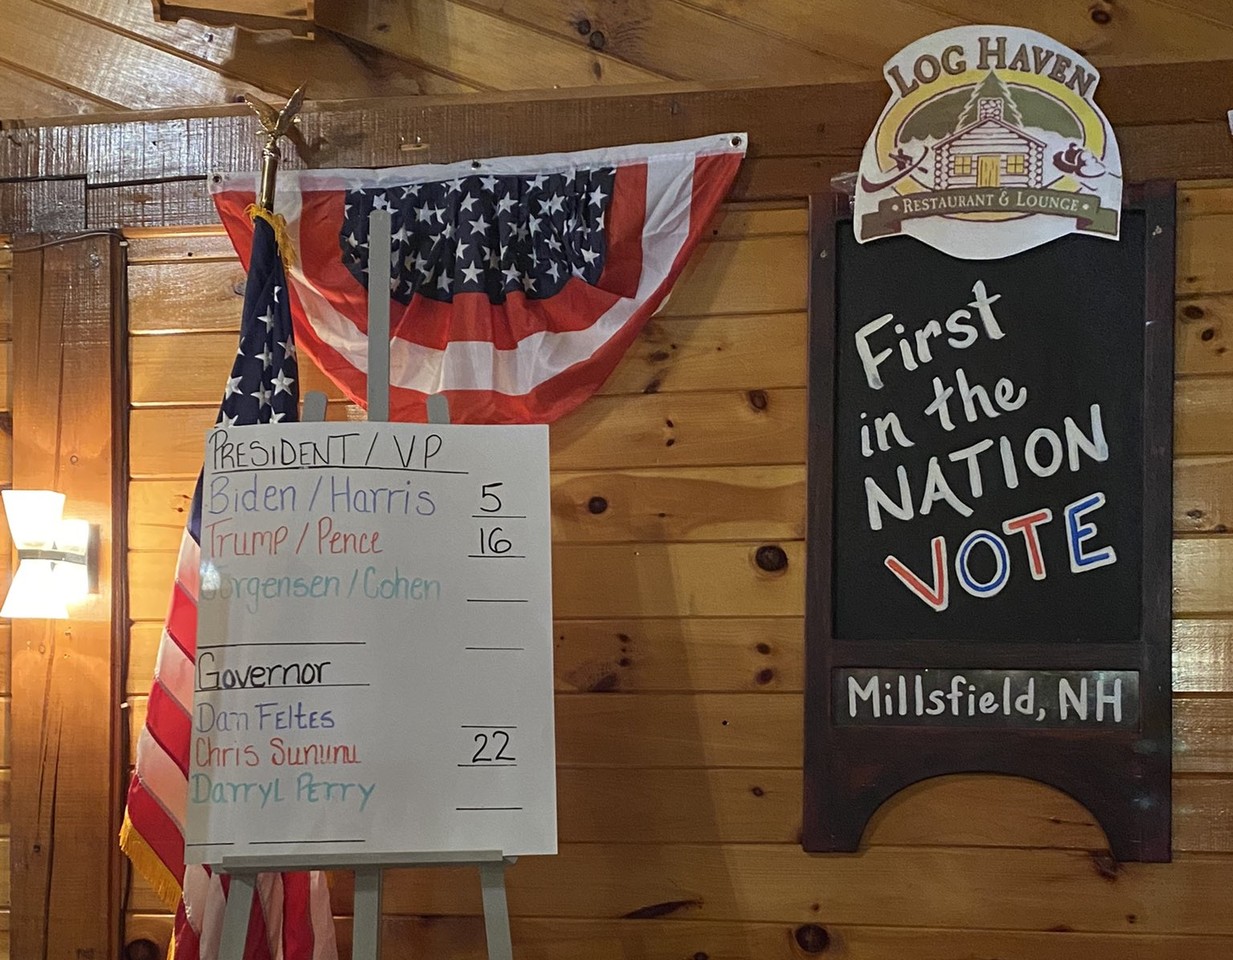 PRESIDENT / VP
Biden / Harris 5
Trump / Pence 16
Jorgensen / Cohen
Governor
Dan Feltes
Chris Sununu 22
Darryl Perry
LOG HAVEN
RESTAURANT & LOUNGE
First
in the
NATION
VOTE
Millsfield, NH